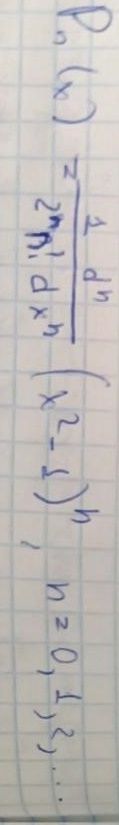 Pₙ(x) = \frac{1 dⁿ}{2ⁿn! dxⁿ} (x² - 1)ⁿ, n = 0, 1, 2, ...